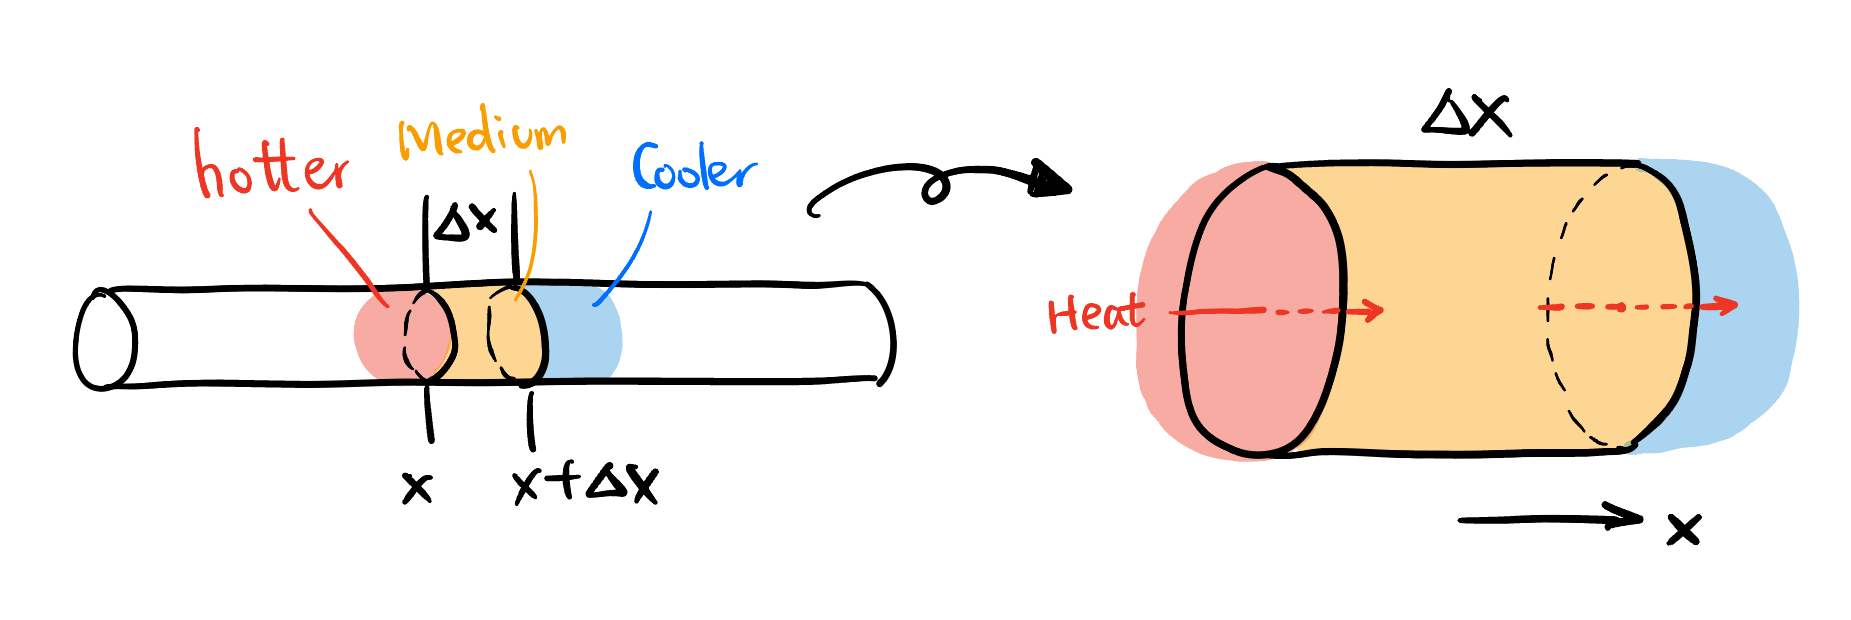 hotter
Medium
Cooler
Δx
x
x+Δx
Δx
Heat
x